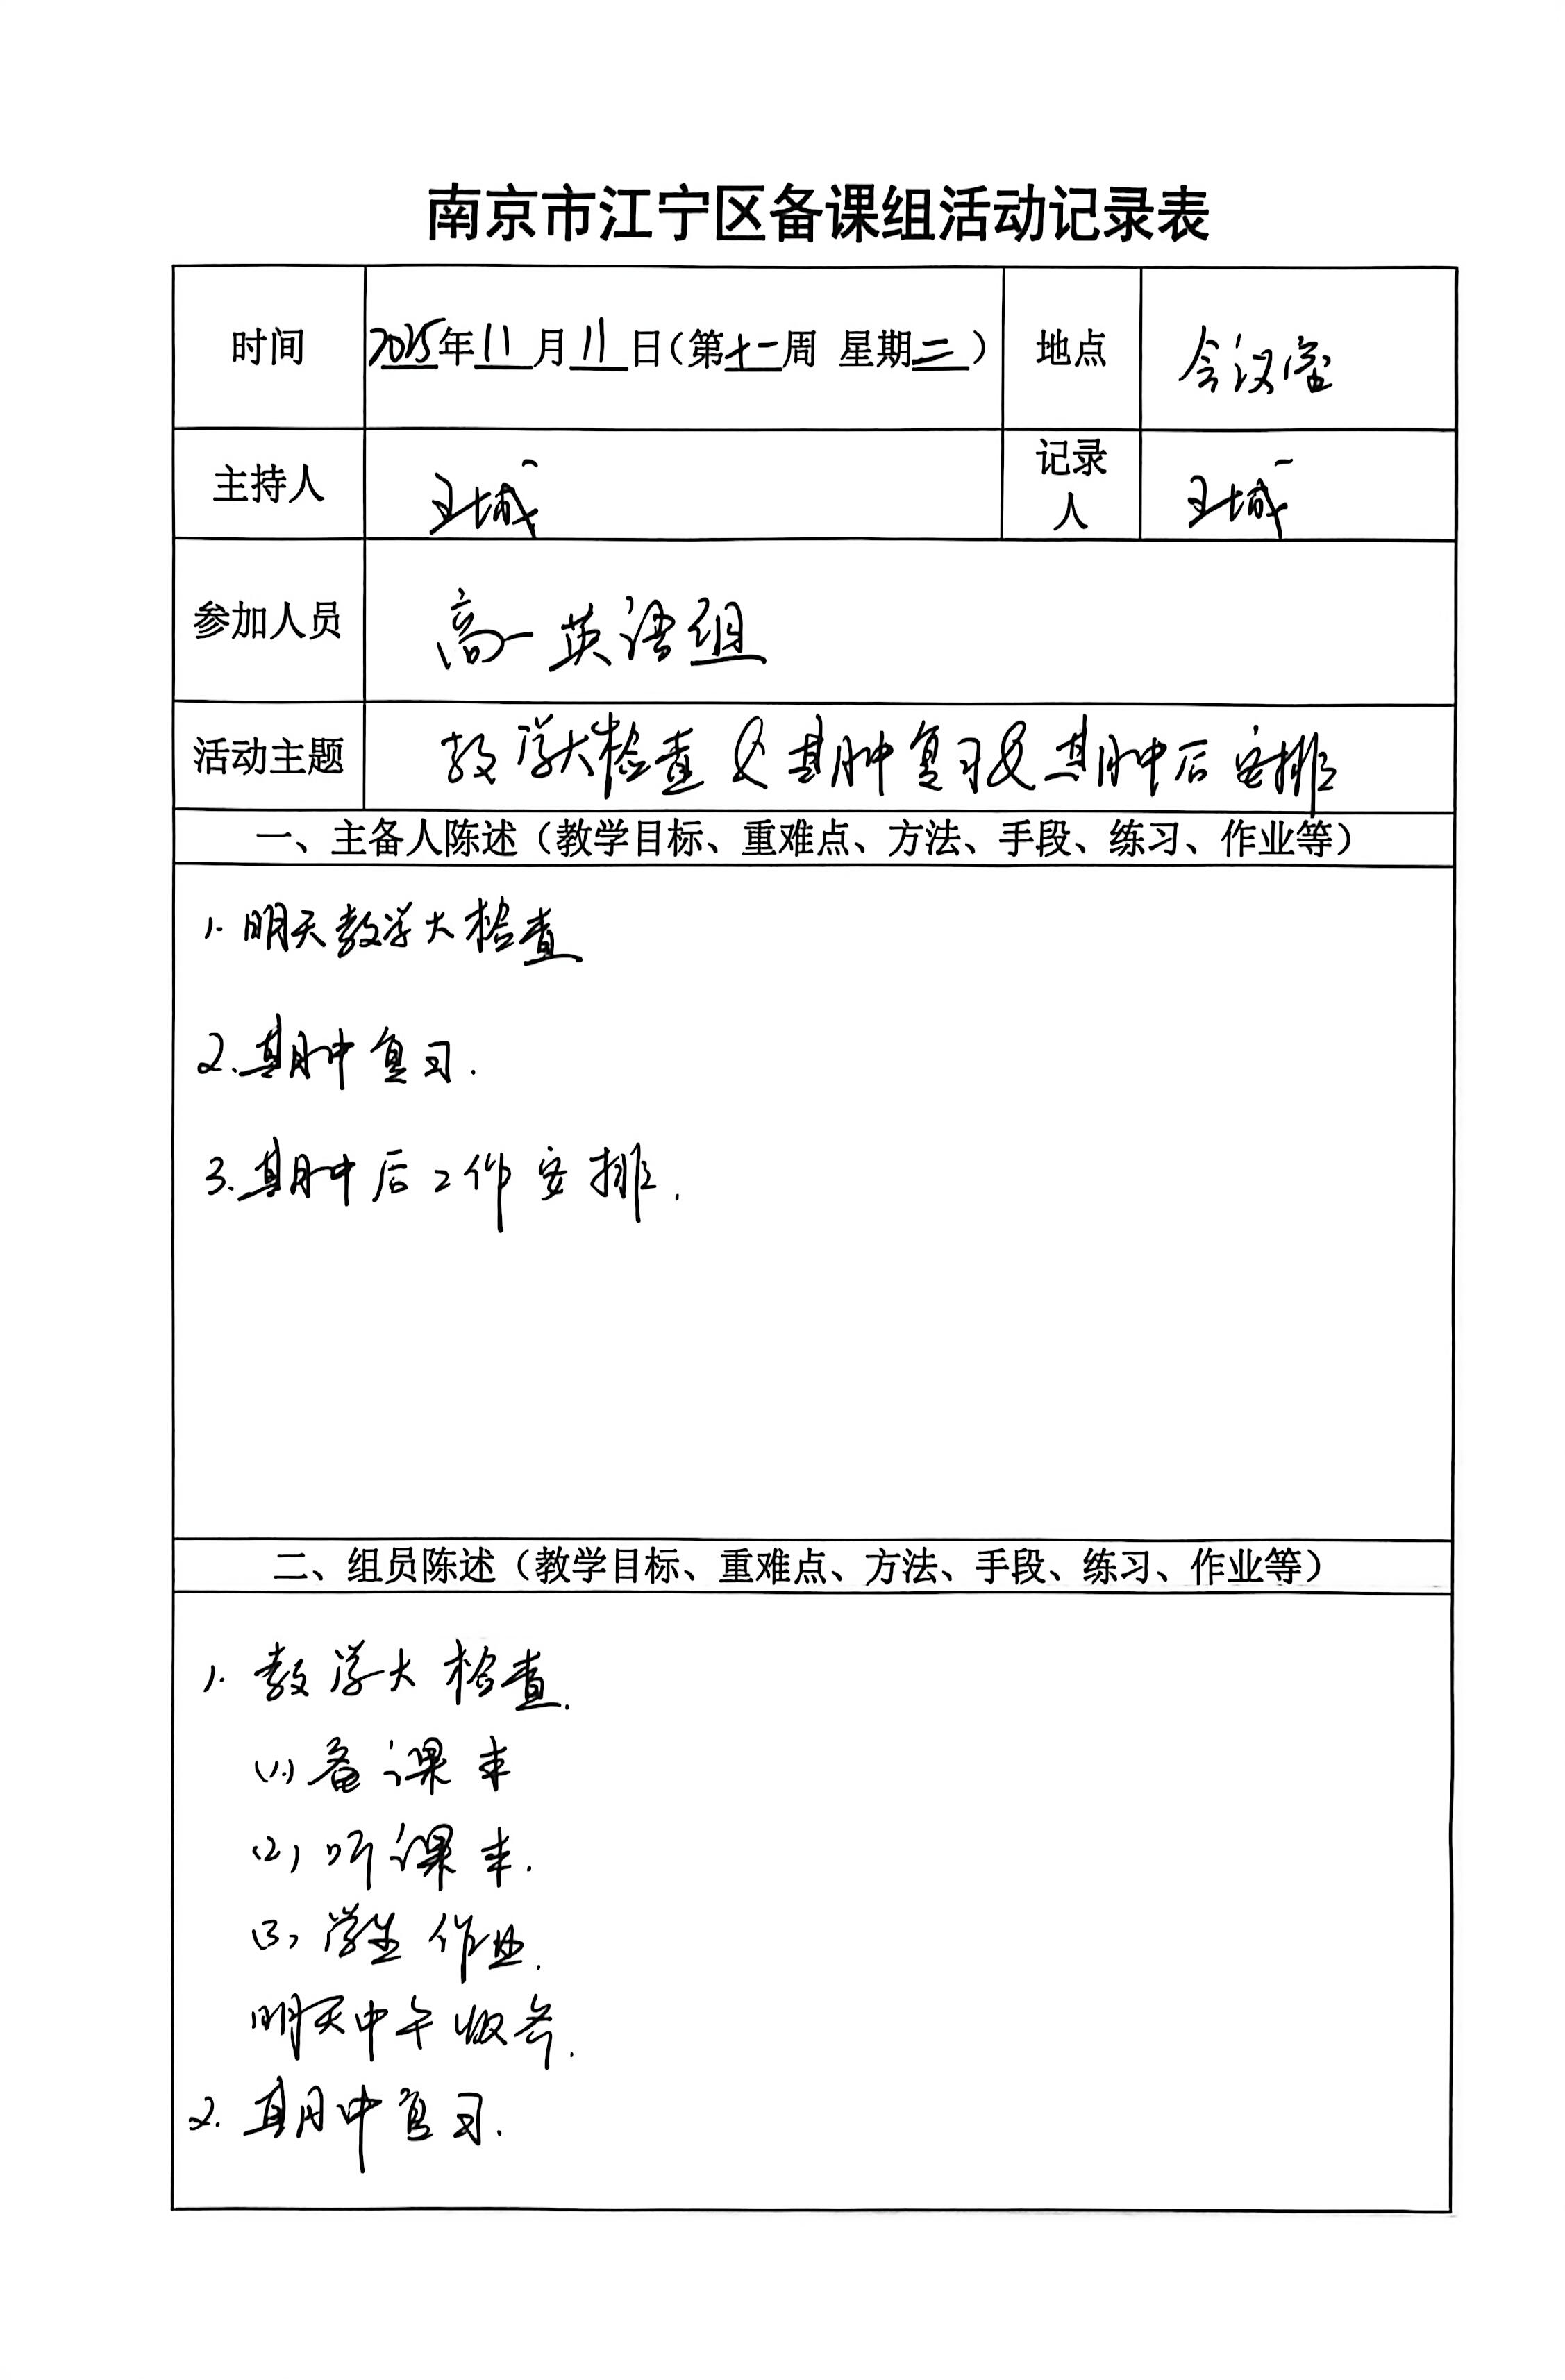 南京市江宁区备课组活动记录表
时间 2025年11月11日(第十一周 星期二) 地点 会议室
主持人 王城 记录人 王城
参加人员 高一英语组
活动主题 教学大检查 & 期中复习 & 期中后安排
一、主备人陈述(教学目标、重难点、方法、手段、练习、作业等)
1. 明天教学大检查
2. 期中复习.
3. 期中后工作安排.
二、组员陈述(教学目标、重难点、方法、手段、练习、作业等)
1. 教学大检查.
(1) 备课本
(2) 听课本.
(3) 学生作业.
明天中午收齐.
2. 期中复习.